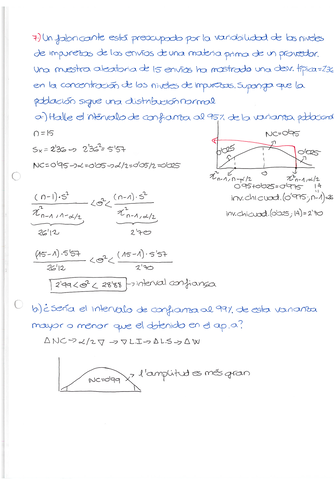 7) Un fabricante está preocupado por la variabilidad de los niveles
de impurezas de los envíos de una materia prima de un proveedor.
Una muestra aleatoria de 15 envíos ha mostrado una desv. típica=2'36
en la concentración de los niveles de impurezas. Suponga que la
población sigue una distribución normal
a) Halle el intervalo de confianza al 95% de la varianza poblacional
n=15
Sx=2'36 → 2'36²=5'57
NC=0'95 → α=0'05 → α/2=0'05/2=0'025
NC=0'95
0'025
0'025
0
0'95+0'025=0'975
14
inv.chicuad.(0'975,n-1)=26
inv.chicuad.(0'025;14)=2'40
(n-1)·S² < σ² < (n-1)·S²
χ² n-1, n-α/2
χ² n-1, α/2
26'12
(15-1)·5'57 < σ² < (15-1)·5'57
26'12
2'99<σ²< 28'88 → interval confiança
b) ¿Sería el intervalo de confianza al 99% de esta varianza
mayor o menor que el obtenido en el ap.a?
△NC → α/2 ▽ → ▽LI → △LS → △W
NC=0'99
→ l'amplitud es més gran